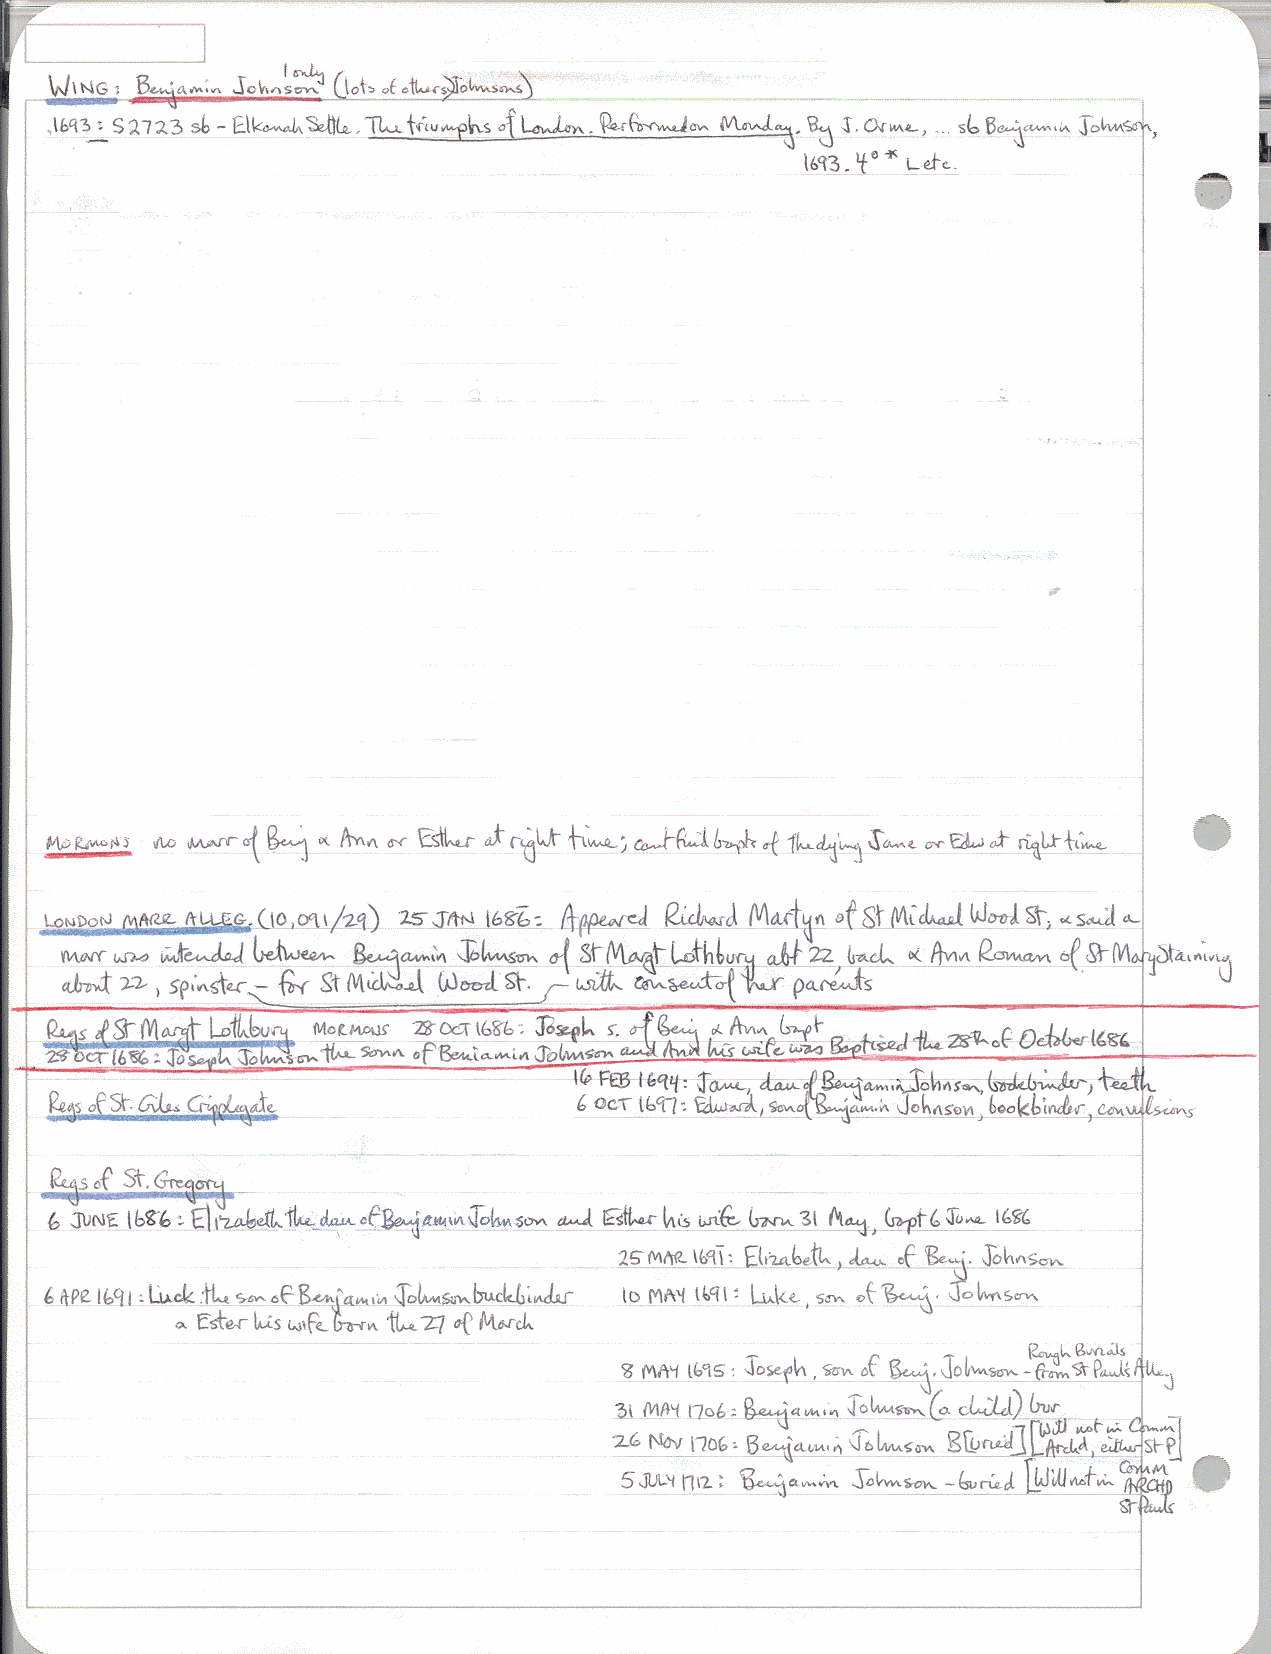 1 only
WING: Benjamin Johnson (lots of others Johnsons)
1693: S2723 sb - Elkanah Settle. The triumphs of London. Performed on Monday. By J. Orme, ... sb Benjamin Johnson,
1693. 4° * L etc.
MORMONS no marr of Benj & Ann or Esther at right time; cant find bapts of the dying Jane or Edw at right time
LONDON MARR ALLEG. (10,091/29) 25 JAN 1686: Appeared Richard Martyn of St Michael Wood St, & said a
marr was intended between Benjamin Johnson of St Margt Lothbury abt 22, bach & Ann Roman of St Mary Staining
about 22, spinster - for St Michael Wood St. - with consent of her parents
Regs of St Margt Lothbury MORMONS 28 OCT 1686: Joseph s. of Benj & Ann bapt
28 OCT 1686: Joseph Johnson the sonn of Beniamin Johnson and Ann his wife was Baptised the 28th of October 1686
16 FEB 1694: Jane, dau of Benjamin Johnson, bookbinder, teeth
Regs of St. Giles Cripplegate 6 OCT 1697: Edward, son of Benjamin Johnson, bookbinder, convulsions
Regs of St. Gregory
6 JUNE 1686: Elizabeth the dau of Benjamin Johnson and Esther his wife born 31 May, bapt 6 June 1686
25 MAR 1691: Elizabeth, dau of Benj. Johnson
6 APR 1691: Luck the son of Benjamin Johnson buckbinder 10 MAY 1691: Luke, son of Benj. Johnson
& Ester his wife born the 27 of March
Rough Burials
8 MAY 1695: Joseph, son of Benj. Johnson - from St Paul's Alley
31 MAY 1706: Benjamin Johnson (a child) bur
26 NOV 1706: Benjamin Johnson B[uried] [Will not in Comm
Archd, either St P]
5 JULY 1712: Benjamin Johnson - buried [Will not in Comm
ARCHD
St Pauls